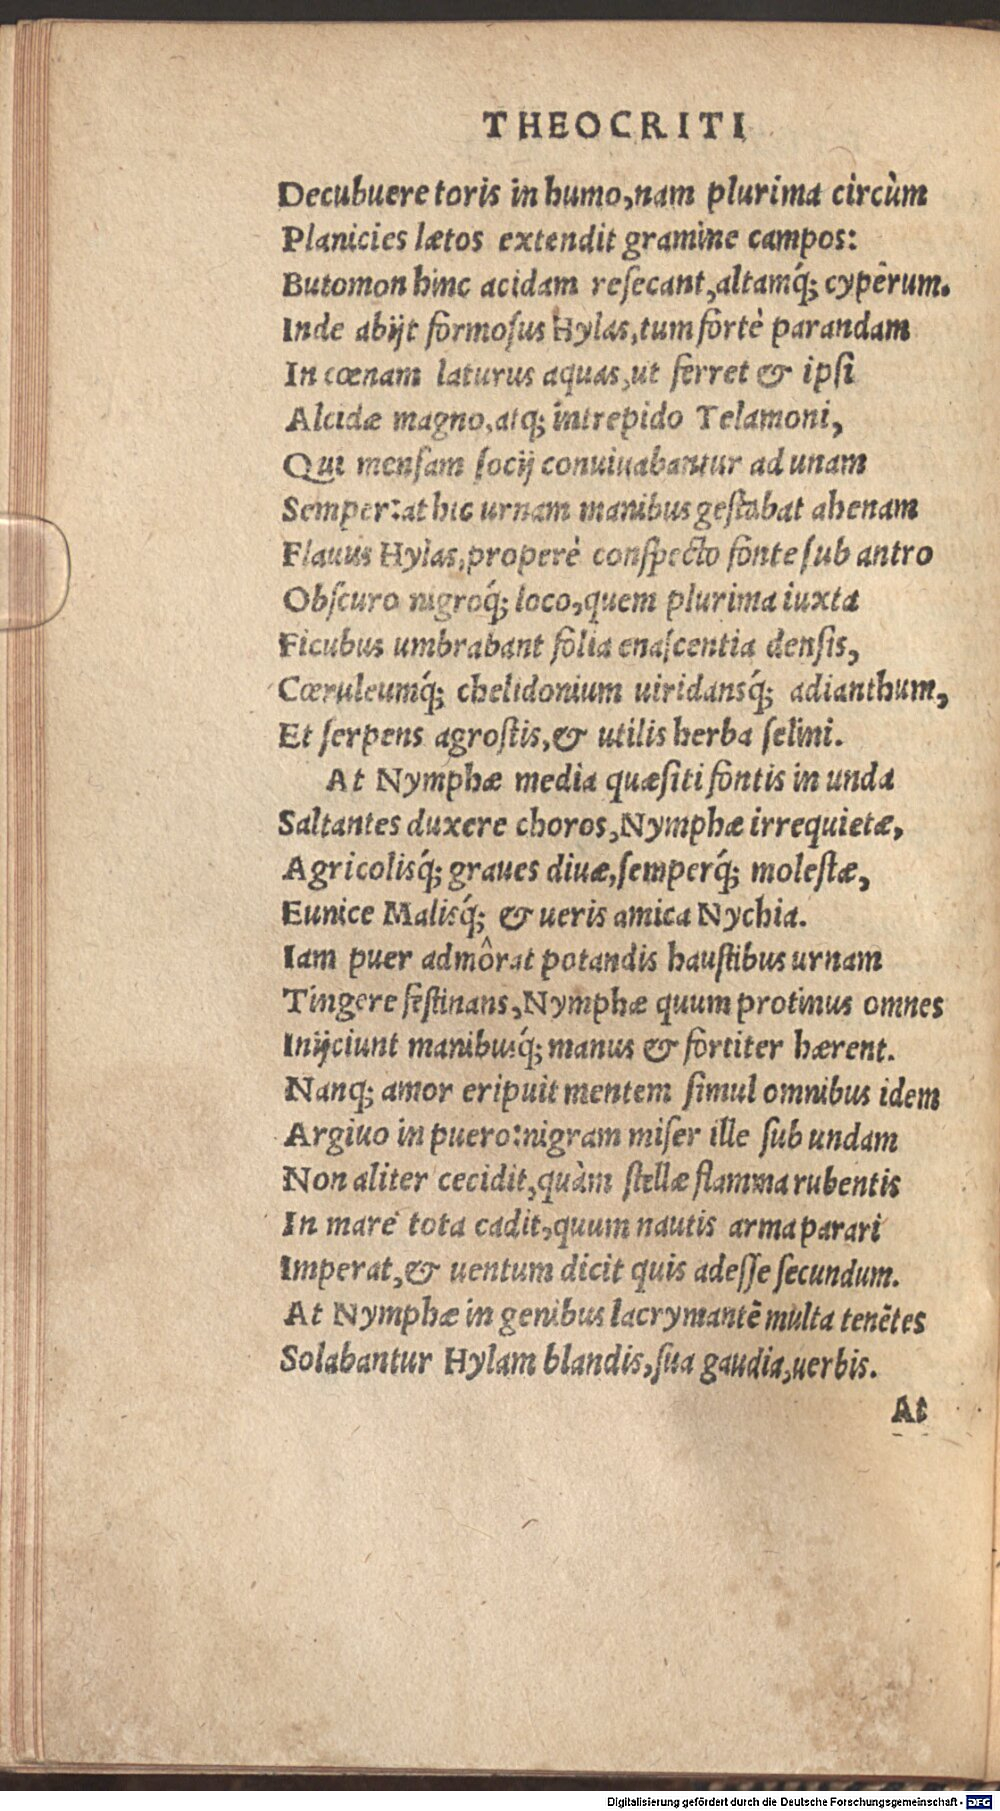 THEOCRITI
Decubuere toris in humo, nam plurima circùm
Planicies lætos extendit gramine campos:
Butomon hinc acidam resecant, altamq́; cypêrum.
Inde abijt formosus Hylas, tum fortè parandam
In cœnam laturus aquas, ut ferret & ipsi
Alcidæ magno, atq; intrepido Telamoni,
Qui mensam socij conuiuabantur ad unam
Semper: at hic urnam manibus gestabat ahenam
Flauus Hylas, properè conspecto fonte sub antro
Obscuro nigroq́; loco, quem plurima iuxta
Ficubus umbrabant folia enascentia densis,
Cœruleumq́; chelidonium uiridansq́; adianthum,
Et serpens agrostis, & utilis herba selini.
At Nymphæ media quæsiti fontis in unda
Saltantes duxere choros, Nymphæ irrequietæ,
Agricolisq́; graues diuæ, semperq́; molestæ,
Eunice Malisq́; & ueris amica Nychia.
Iam puer admôrat potandis haustibus urnam
Tingere festinans, Nymphæ quum protinus omnes
Inijciunt manibusq́; manus & fortiter hærent.
Nanq; amor eripuit mentem simul omnibus idem
Argiuo in puero: nigram miser ille sub undam
Non aliter cecidit, quàm stellæ flamma rubentis
In mare tota cadit, quum nautis arma parari
Imperat, & uentum dicit quis adesse secundum.
At Nymphæ in genibus lacrymantẽ multa tenẽtes
Solabantur Hylam blandis, sua gaudia, uerbis.
At
Digitalisierung gefördert durch die Deutsche Forschungsgemeinschaft - DFG